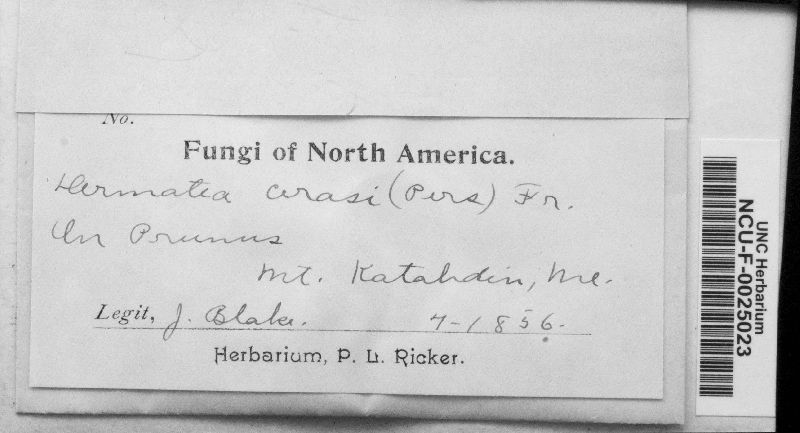 No.
Fungi of North America.
Dermatea cerasi (Pers) Fr.
On Prunus
Mt. Katahdin, Me.
Legit, J. Blake. 7-1856.
Herbarium, P. L. Ricker.
UNC Herbarium
NCU-F-0025023